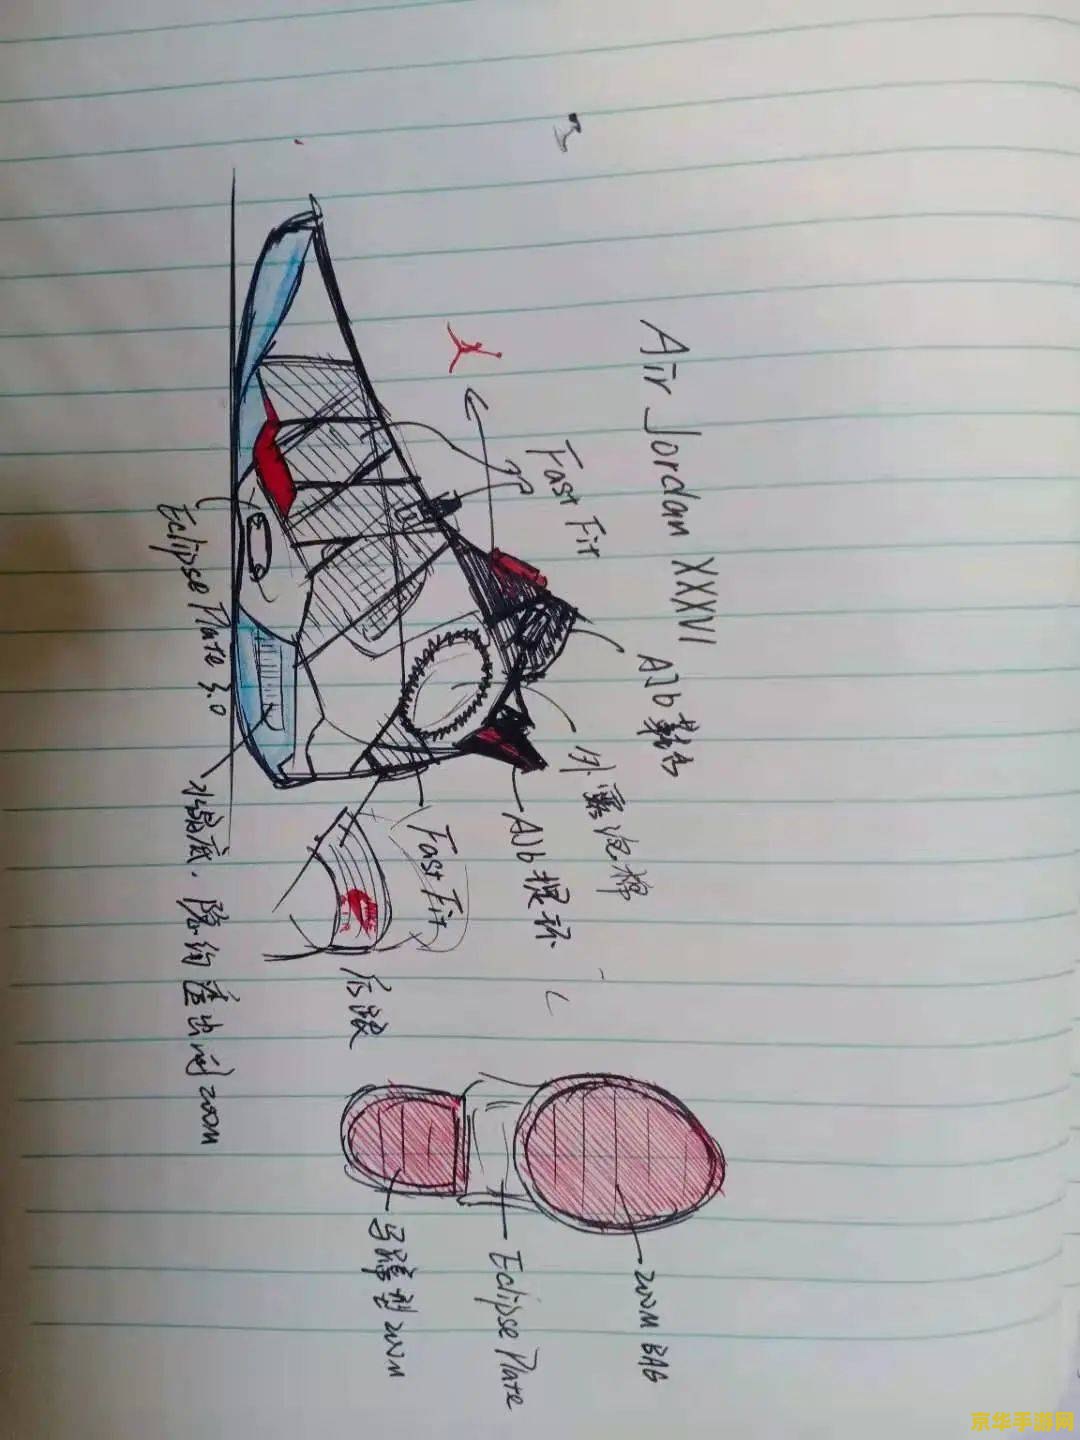 Air Jordan XXXVI
Fast Fit
AJ6鞋舌
外露泡棉
AJ6提环
Fast Fit
后跟
Eclipse Plate 3.0
水晶底，隐约透出闭ZOOM
ZOOM BAG
Eclipse Plate
马蹄型ZOOM
京华手游网